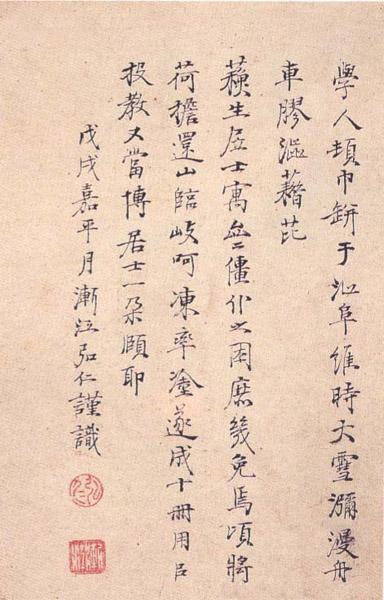 學人頫巾缾于沚阜維時大雪瀰漫舟
車膠澁藉芘
生居士寓僵仆之困庶幾免焉頃將
荷擔還山臨岐呵凍率塗遂成十冊用㠯
投教又當博居士一朵頤耶
戊戌嘉平月漸江弘仁謹識
弘仁